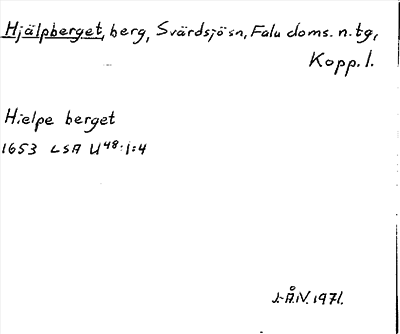 Hjälpberget, berg, Svärdsjö sn, Falu doms. n. tg,
Kopp. l.
Hielpe berget
1653 LSA U48:1:4
J-Å.N. 1971.